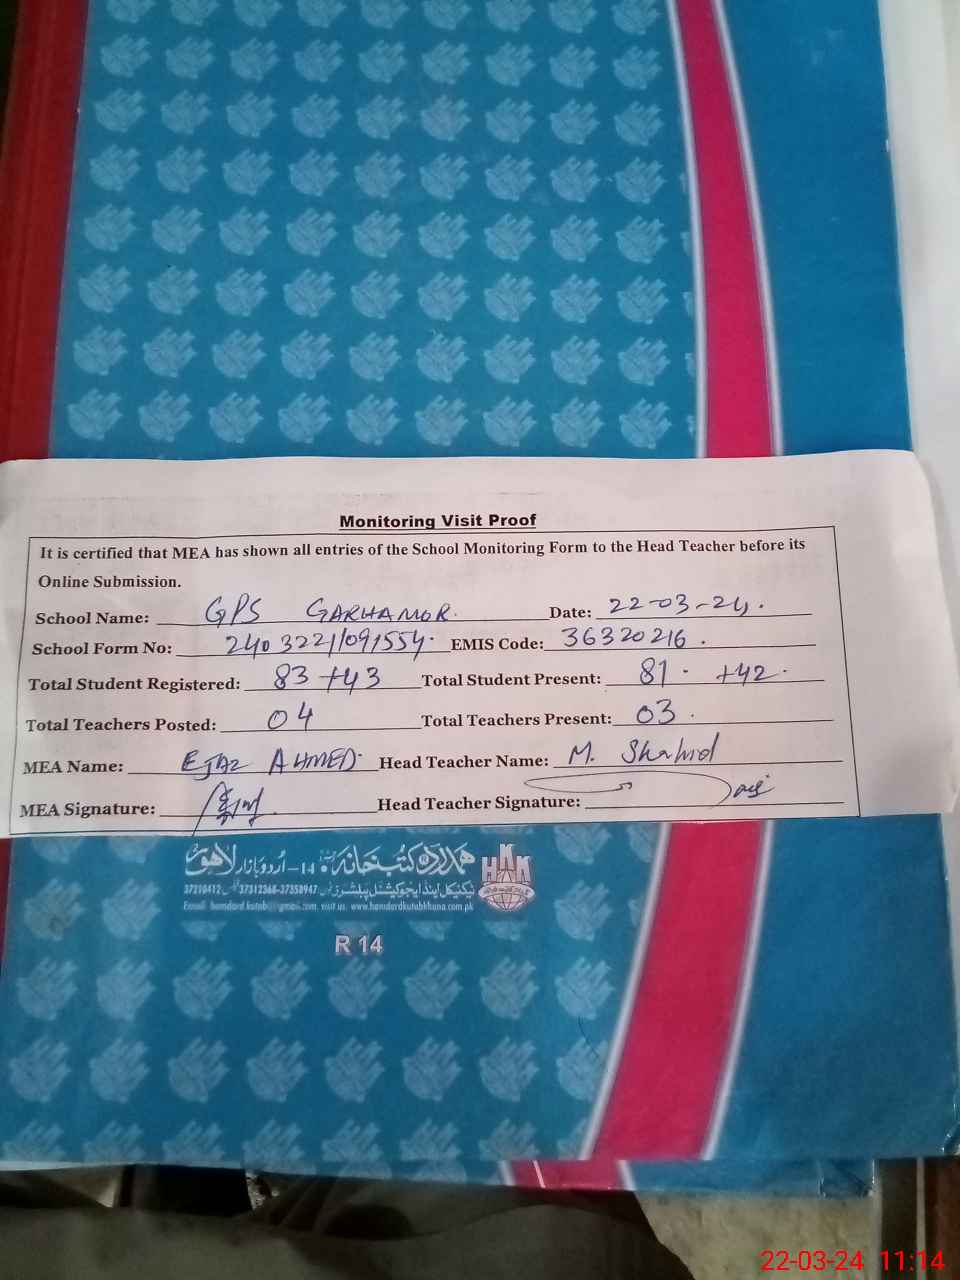 Monitoring Visit Proof
It is certified that MEA has shown all entries of the School Monitoring Form to the Head Teacher before its
Online Submission.
School Name: GPS GARHAMOR. Date: 22-03-24.
School Form No: 2403221/091554. EMIS Code: 36320216.
Total Student Registered: 83 +43 Total Student Present: 81 +42
Total Teachers Posted: 04 Total Teachers Present: 03.
MEA Name: EJAZ AHMED Head Teacher Name: M. Shahid
MEA Signature: Head Teacher Signature:
ہمدرد کتب خانہ 14-اردو بازار لاہور
ٹیکنیکل اینڈ ایجوکیشنل پبلشرز 37312368-37358947 37210412
Email: hamdard.kutab@gmail.com. visit us: www.hamdardkutabkhana.com.pk
HKK
R 14
22-03-24 11:14